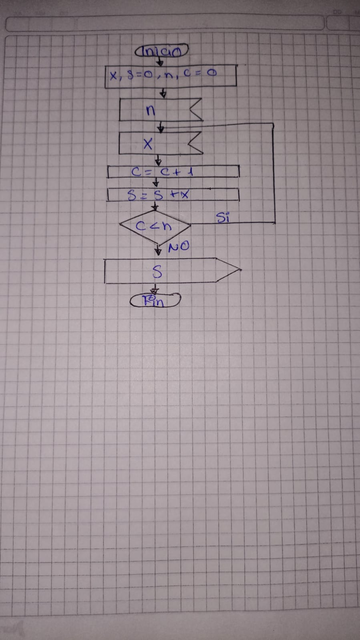 Inicio
x, s=0, n, c=0
n
x
c = c + 1
s = s + x
c < n
Si
NO
s
Fin